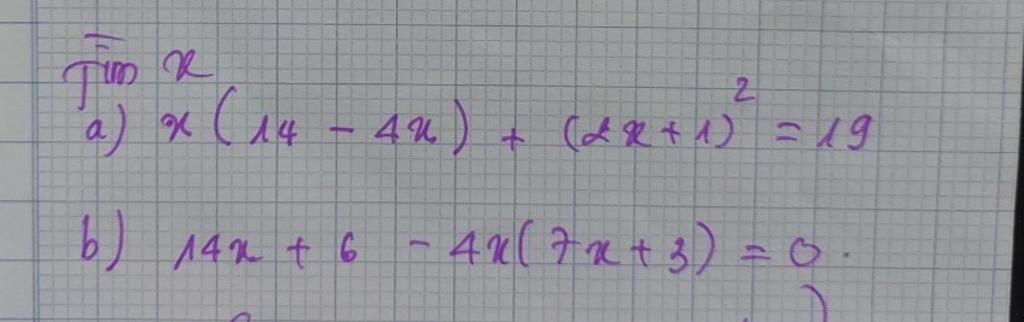 Tìm x
a) x(14 - 4x) + (2x+1)² = 19
b) 14x + 6 - 4x(7x+3) = 0.